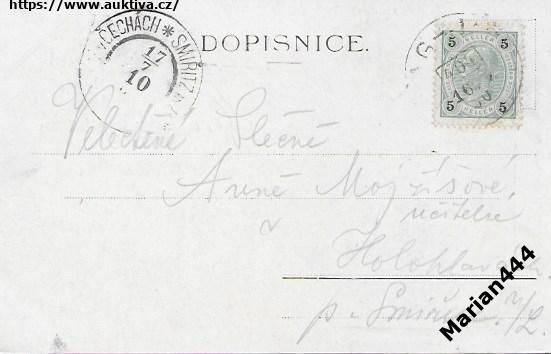 https://www.auktiva.cz/
ČECHÁCH * SMIŘITZ
17
7
10
DOPISNICE.
5 5
5 5
16
Velectěné Slečně
Anně Mojžíšové
učitelce
v Holohlavech
p. Smiřice n/L.
Marian444